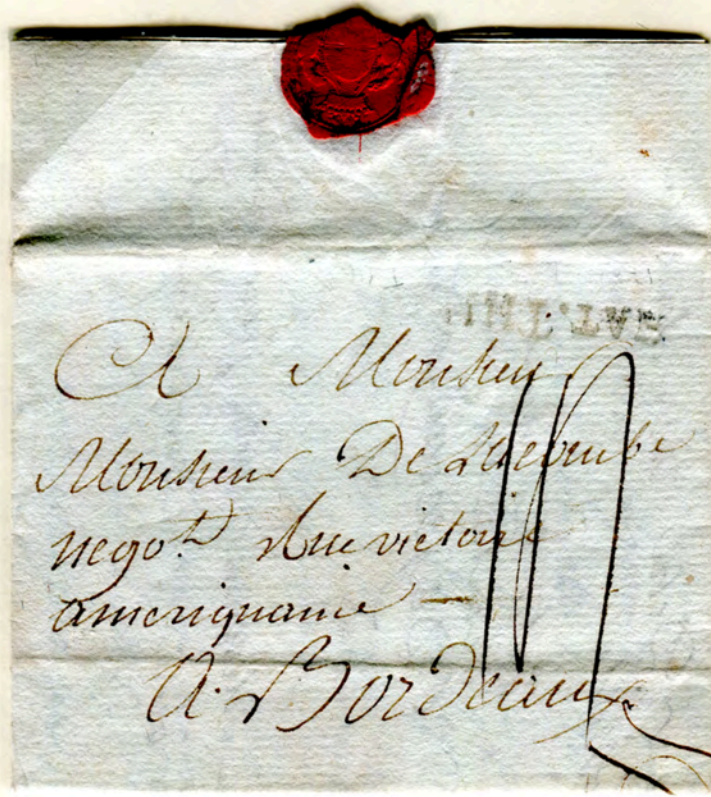 A Monsieur
Monsieur De Lacombe
negot. Rue victoire
ameriquaine —
A. Bordeaux